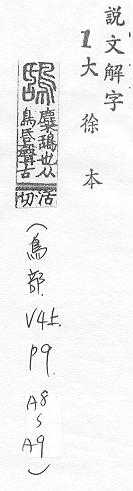 説文解字
1大徐本
鴰 麋鴰也从
鳥𠯑聲古
活切
(鳥部. V4上. P9. A8 S A9)